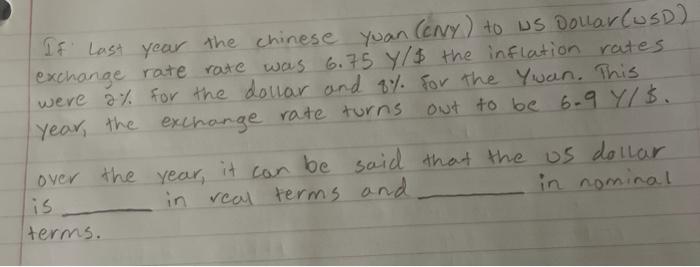 If Last year the chinese yuan (CNY) to US Dollar (USD)
exchange rate rate was 6.75 Y/$ the inflation rates
were 2% for the dollar and 8% for the Ywan. This
year, the exchange rate turns out to be 6.9 Y/$.
over the year, it can be said that the US dollar
is ______ in real terms and ______ in nominal
terms.